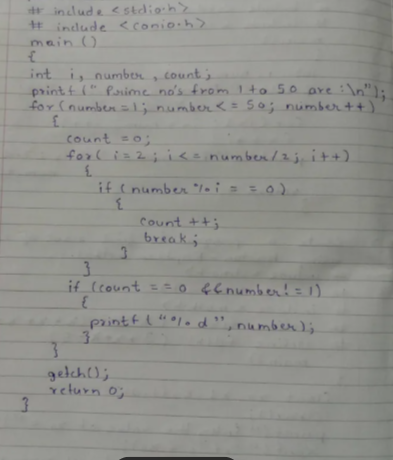 # include <stdio.h>
# include <conio.h>
main ()
{
int i, number, count;
printf (" Prime no's from 1 to 50 are :\n");
for (number=1; number <= 50; number++)
{
count =0;
for( i=2 ; i<= number/2; i++)
{
if ( number % i = = 0)
{
count ++;
break;
}
}
if (count == 0 && number! = 1)
{
printf ( "% d ", number);
}
}
getch();
return 0;
}